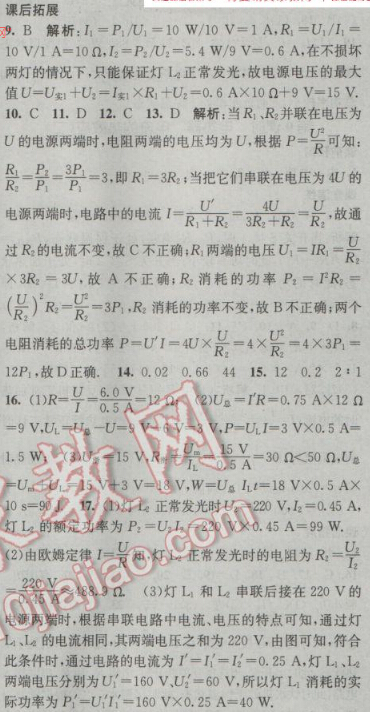 课后拓展
9. B 解析: I₁=P₁/U₁=10 W/10 V=1 A,R₁=U₁/I₁=
10 V/1 A=10 Ω,I₂=P₂/U₂=5.4 W/9 V=0.6 A,在不损坏
两灯的情况下,只能保证灯 L₂ 正常发光,故电源电压的最大
值 U=U实1+U₂=I实1×R₁+U₂=0.6 A×10 Ω+9 V=15 V.
10. C 11. D 12. C 13. D 解析:当 R₁、R₂ 并联在电压为
U 的电源两端时,电阻两端的电压均为 U,根据 P=U²/R 可知:
R₁/R₂=P₂/P₁=3P₁/P₁=3,即 R₁=3R₂;当把它们串联在电压为 4U 的
电源两端时,电路中的电流 I=U′/(R₁+R₂)=4U/(3R₂+R₂)=U/R₂,故通
过 R₂ 的电流不变,故 C 不正确;R₁ 两端的电压 U₁=IR₁=U/R₂
×3R₂=3U,故 A 不正确;R₂ 消耗的功率 P₂=I²R₂=
(U/R₂)²R₂=U²/R₂=3P₁,R₂ 消耗的功率不变,故 B 不正确;两个
电阻消耗的总功率 P=U′I=4U×U/R₂=4×U²/R₂=4×3P₁=
12P₁,故 D 正确. 14. 0.02 0.66 44 15. 12 0.2 2∶1
16. (1)R=U/I=6.0 V/0.5 A=12 Ω; (2)U总=I′R=0.75 A×12 Ω
=9 V,UL=U总-U=9 V-6 V=3 V,P=ULI=3 V×0.5 A=
1.5 W; (3) =15 V, =15 V/0.5 A=30 Ω<50 Ω,U总
= +UL=15 V+3 V=18 V,W=U总ILt=18 V×0.5 A×
10 s=90 J. 17. (1)灯 L₂ 正常发光时 U₂=220 V,I₂=0.45 A,
灯 L₂ 的额定功率为 P₂=U₂I₂=220 V×0.45 A=99 W.
(2)由欧姆定律 I=U/R 知,灯 L₂ 正常发光时的电阻为 R₂=U₂/I₂
=220 V/0.45 A≈488.9 Ω. (3)灯 L₁ 和 L₂ 串联后接在 220 V 的
电源两端时,根据串联电路中电流、电压的特点可知,通过灯
L₁、L₂ 的电流相同,其两端电压之和为 220 V,由图可知,符合
此条件时,通过电路的电流为 I′=I₁′=I₂′=0.25 A,灯 L₁、L₂
两端电压分别为 U₁′=160 V,U₂′=60 V,所以灯 L₁ 消耗的实
际功率为 P₁′=U₁′I₁′=160 V×0.25 A=40 W.